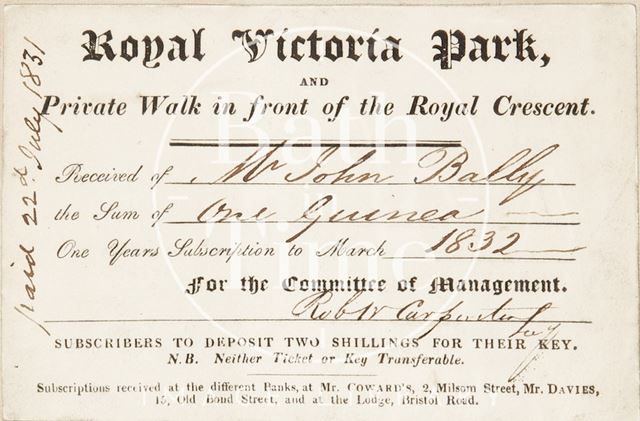 Royal Victoria Park,
AND
Private Walk in front of the Royal Crescent.
Received of Mr John Bally
the Sum of One Guinea
One Years Subscription to March 1832
For the Committee of Management.
Robt Carpenter
SUBSCRIBERS TO DEPOSIT TWO SHILLINGS FOR THEIR KEY.
N.B. Neither Ticket or Key Transferable.
Subscriptions received at the different Banks, at Mr. COWARD'S, 2, Milsom Street, Mr. DAVIES,
15, Old Bond Street, and at the Lodge, Bristol Road.
paid 22d July 1831
Bath in Time